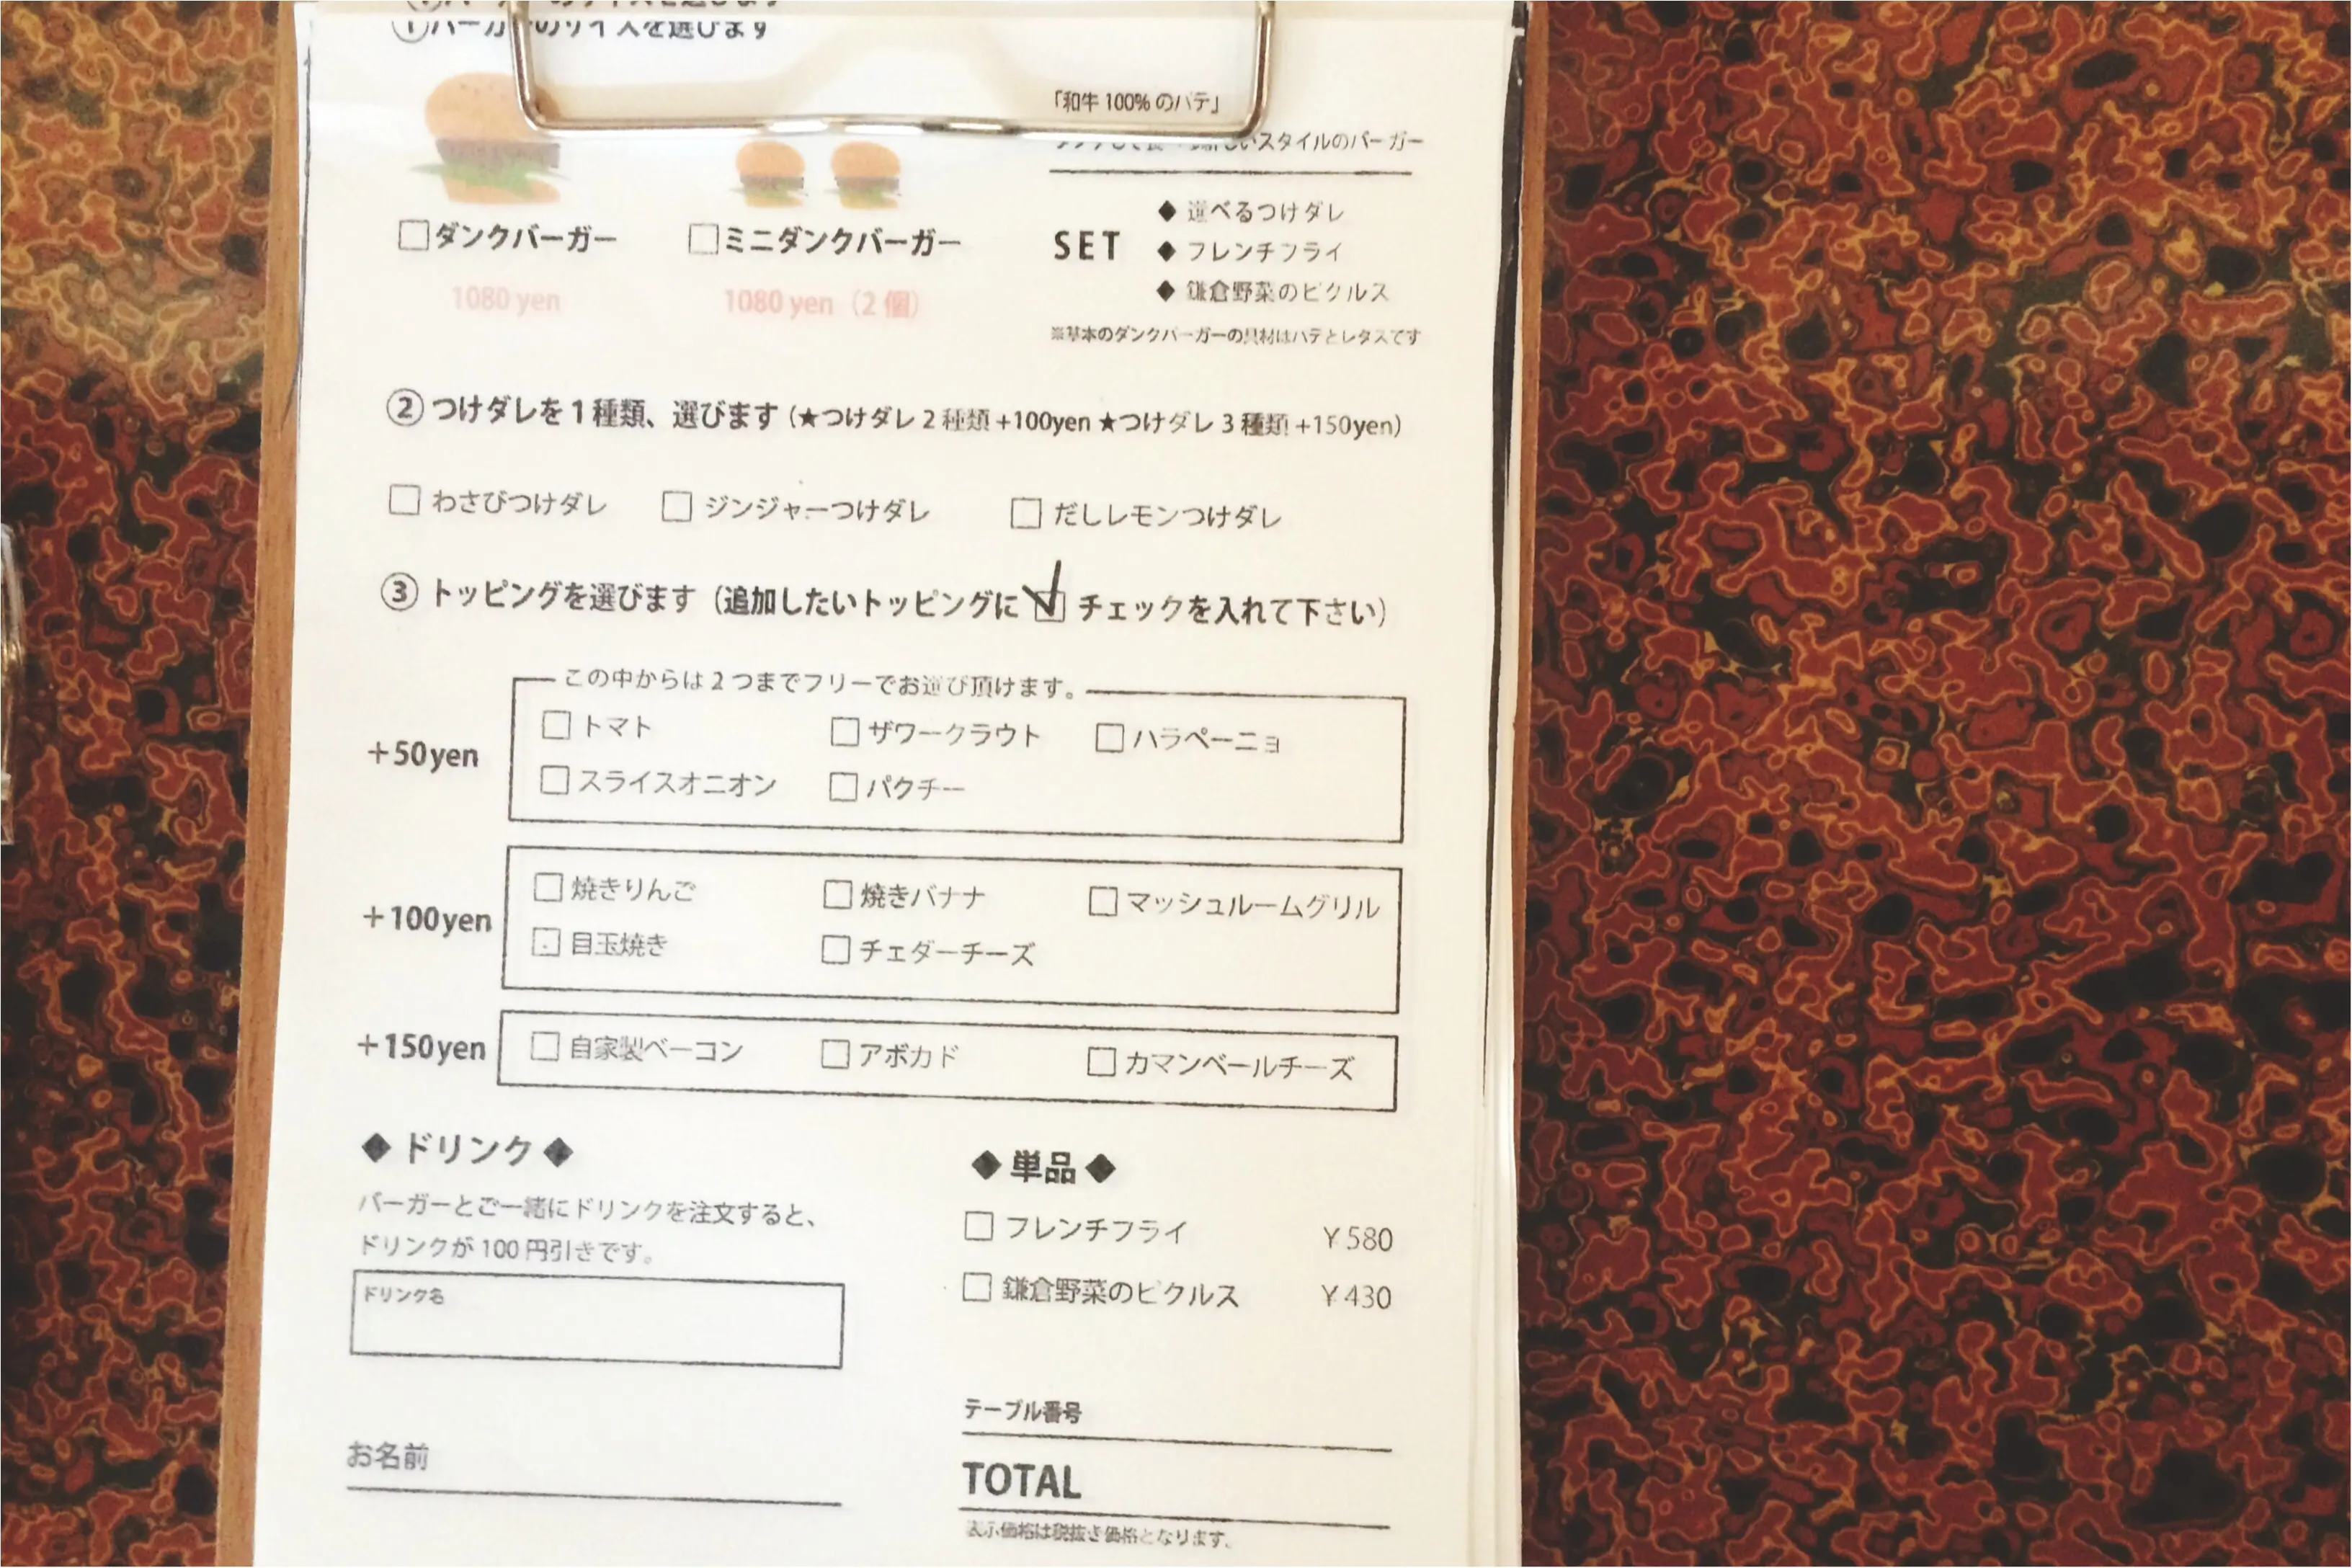 ①バーガーのサイズを選びます
「和牛 100% のパテ」
スタイルのバーガー
ダンクバーガー
ミニダンクバーガー
1080 yen
1080 yen（2 個）
SET
◆ 選べるつけダレ
◆ フレンチフライ
◆ 鎌倉野菜のピクルス
※基本のダンクバーガーの具材はパテとレタスです
② つけダレを 1 種類、選びます（★つけダレ 2 種類 +100yen ★つけダレ 3 種類 +150yen）
□ わさびつけダレ □ ジンジャーつけダレ □ だしレモンつけダレ
③ トッピングを選びます（追加したいトッピングに ☑ チェックを入れて下さい）
この中からは 2 つまでフリーでお選び頂けます。
+50yen
□ トマト □ ザワークラウト □ ハラペーニョ
□ スライスオニオン □ パクチー
+100yen
□ 焼きりんご □ 焼きバナナ □ マッシュルームグリル
□ 目玉焼き □ チェダーチーズ
+150yen
□ 自家製ベーコン □ アボカド □ カマンベールチーズ
◆ ドリンク ◆
バーガーとご一緒にドリンクを注文すると、
ドリンクが 100 円引きです。
ドリンク名
お名前
◆ 単品 ◆
□ フレンチフライ ￥580
□ 鎌倉野菜のピクルス ￥430
テーブル番号
TOTAL
表示価格は税抜き価格となります。